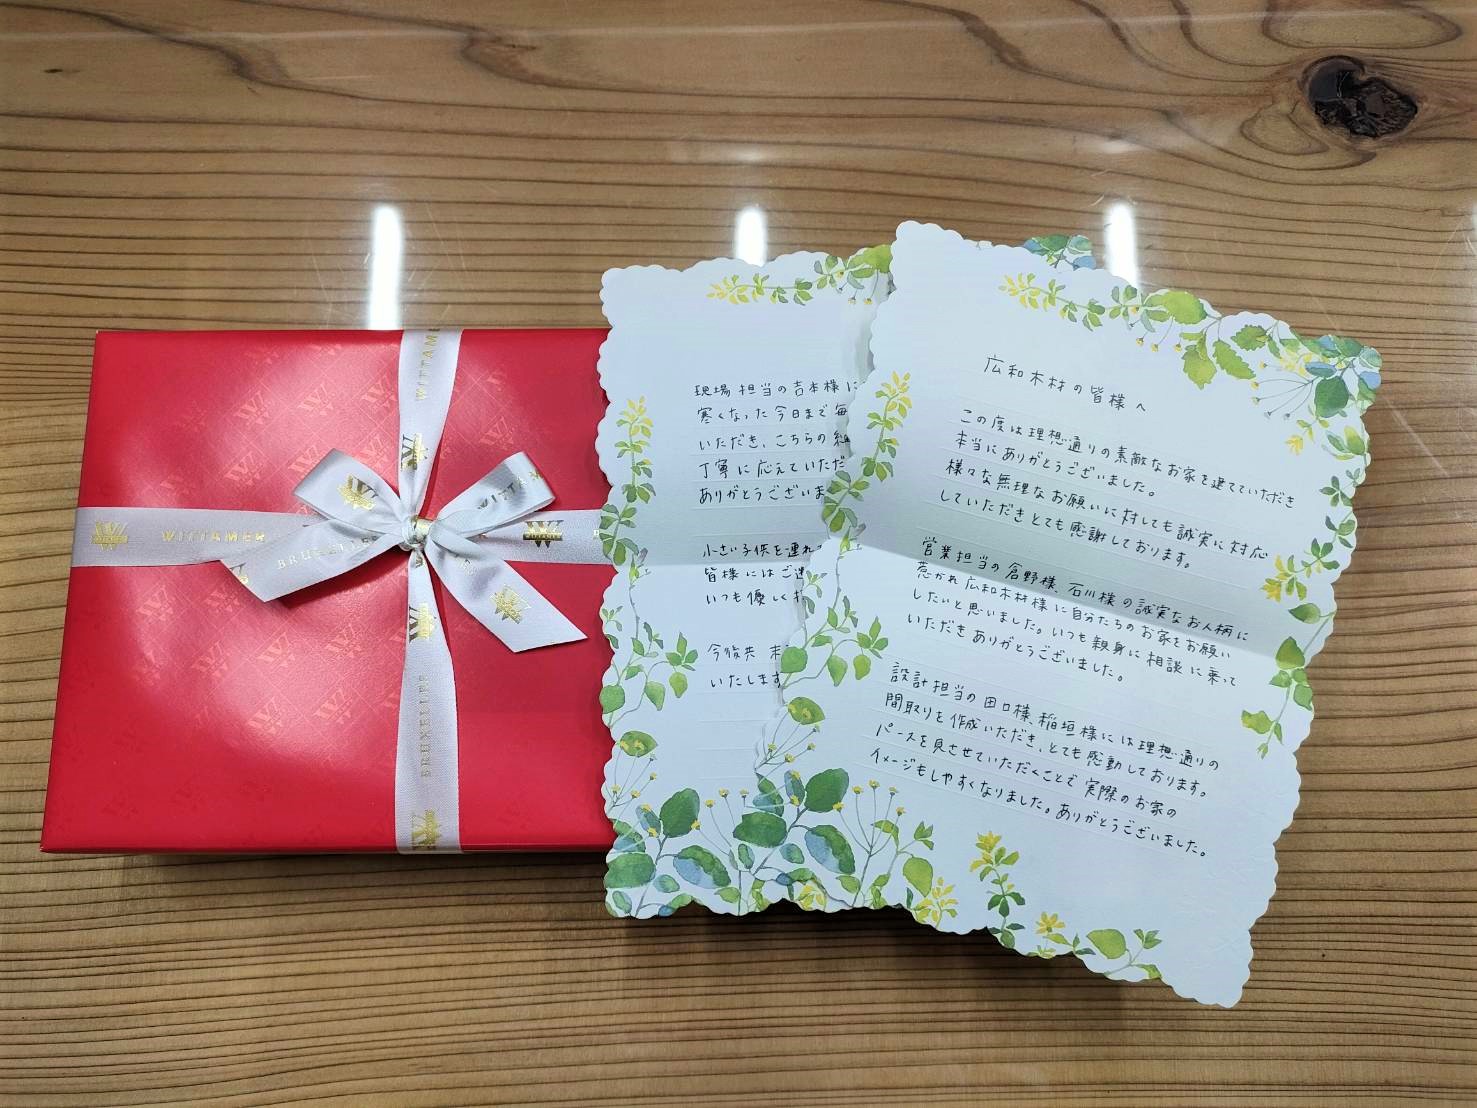 WITTAMER
WITTAMER
WITTAM
BRUXELLES
B
BRUXELLES
現場担当の吉本様に
寒くなった今日まで毎
いただき、こちらの細
丁寧に応えていただ
ありがとうございま
小さい子供を連れ
皆様にはご迷
いつも優しく
今後共 末
いたします
広和木材の皆様へ
この度は理想通りの素敵なお家を建てていただき
本当にありがとうございました。
様々な無理なお願いに対しても誠実に対応
していただきとても感謝しております。
営業担当の倉野様、石川様の誠実なお人柄に
惹かれ広和木材様に自分たちのお家をお願い
したいと思いました。いつも親身に相談に乗って
いただきありがとうございました。
設計担当の田口様、稲垣様には理想通りの
間取りを作成いただき、とても感動しております。
パースを見させていただくことで実際のお家の
イメージもしやすくなりました。ありがとうございました。